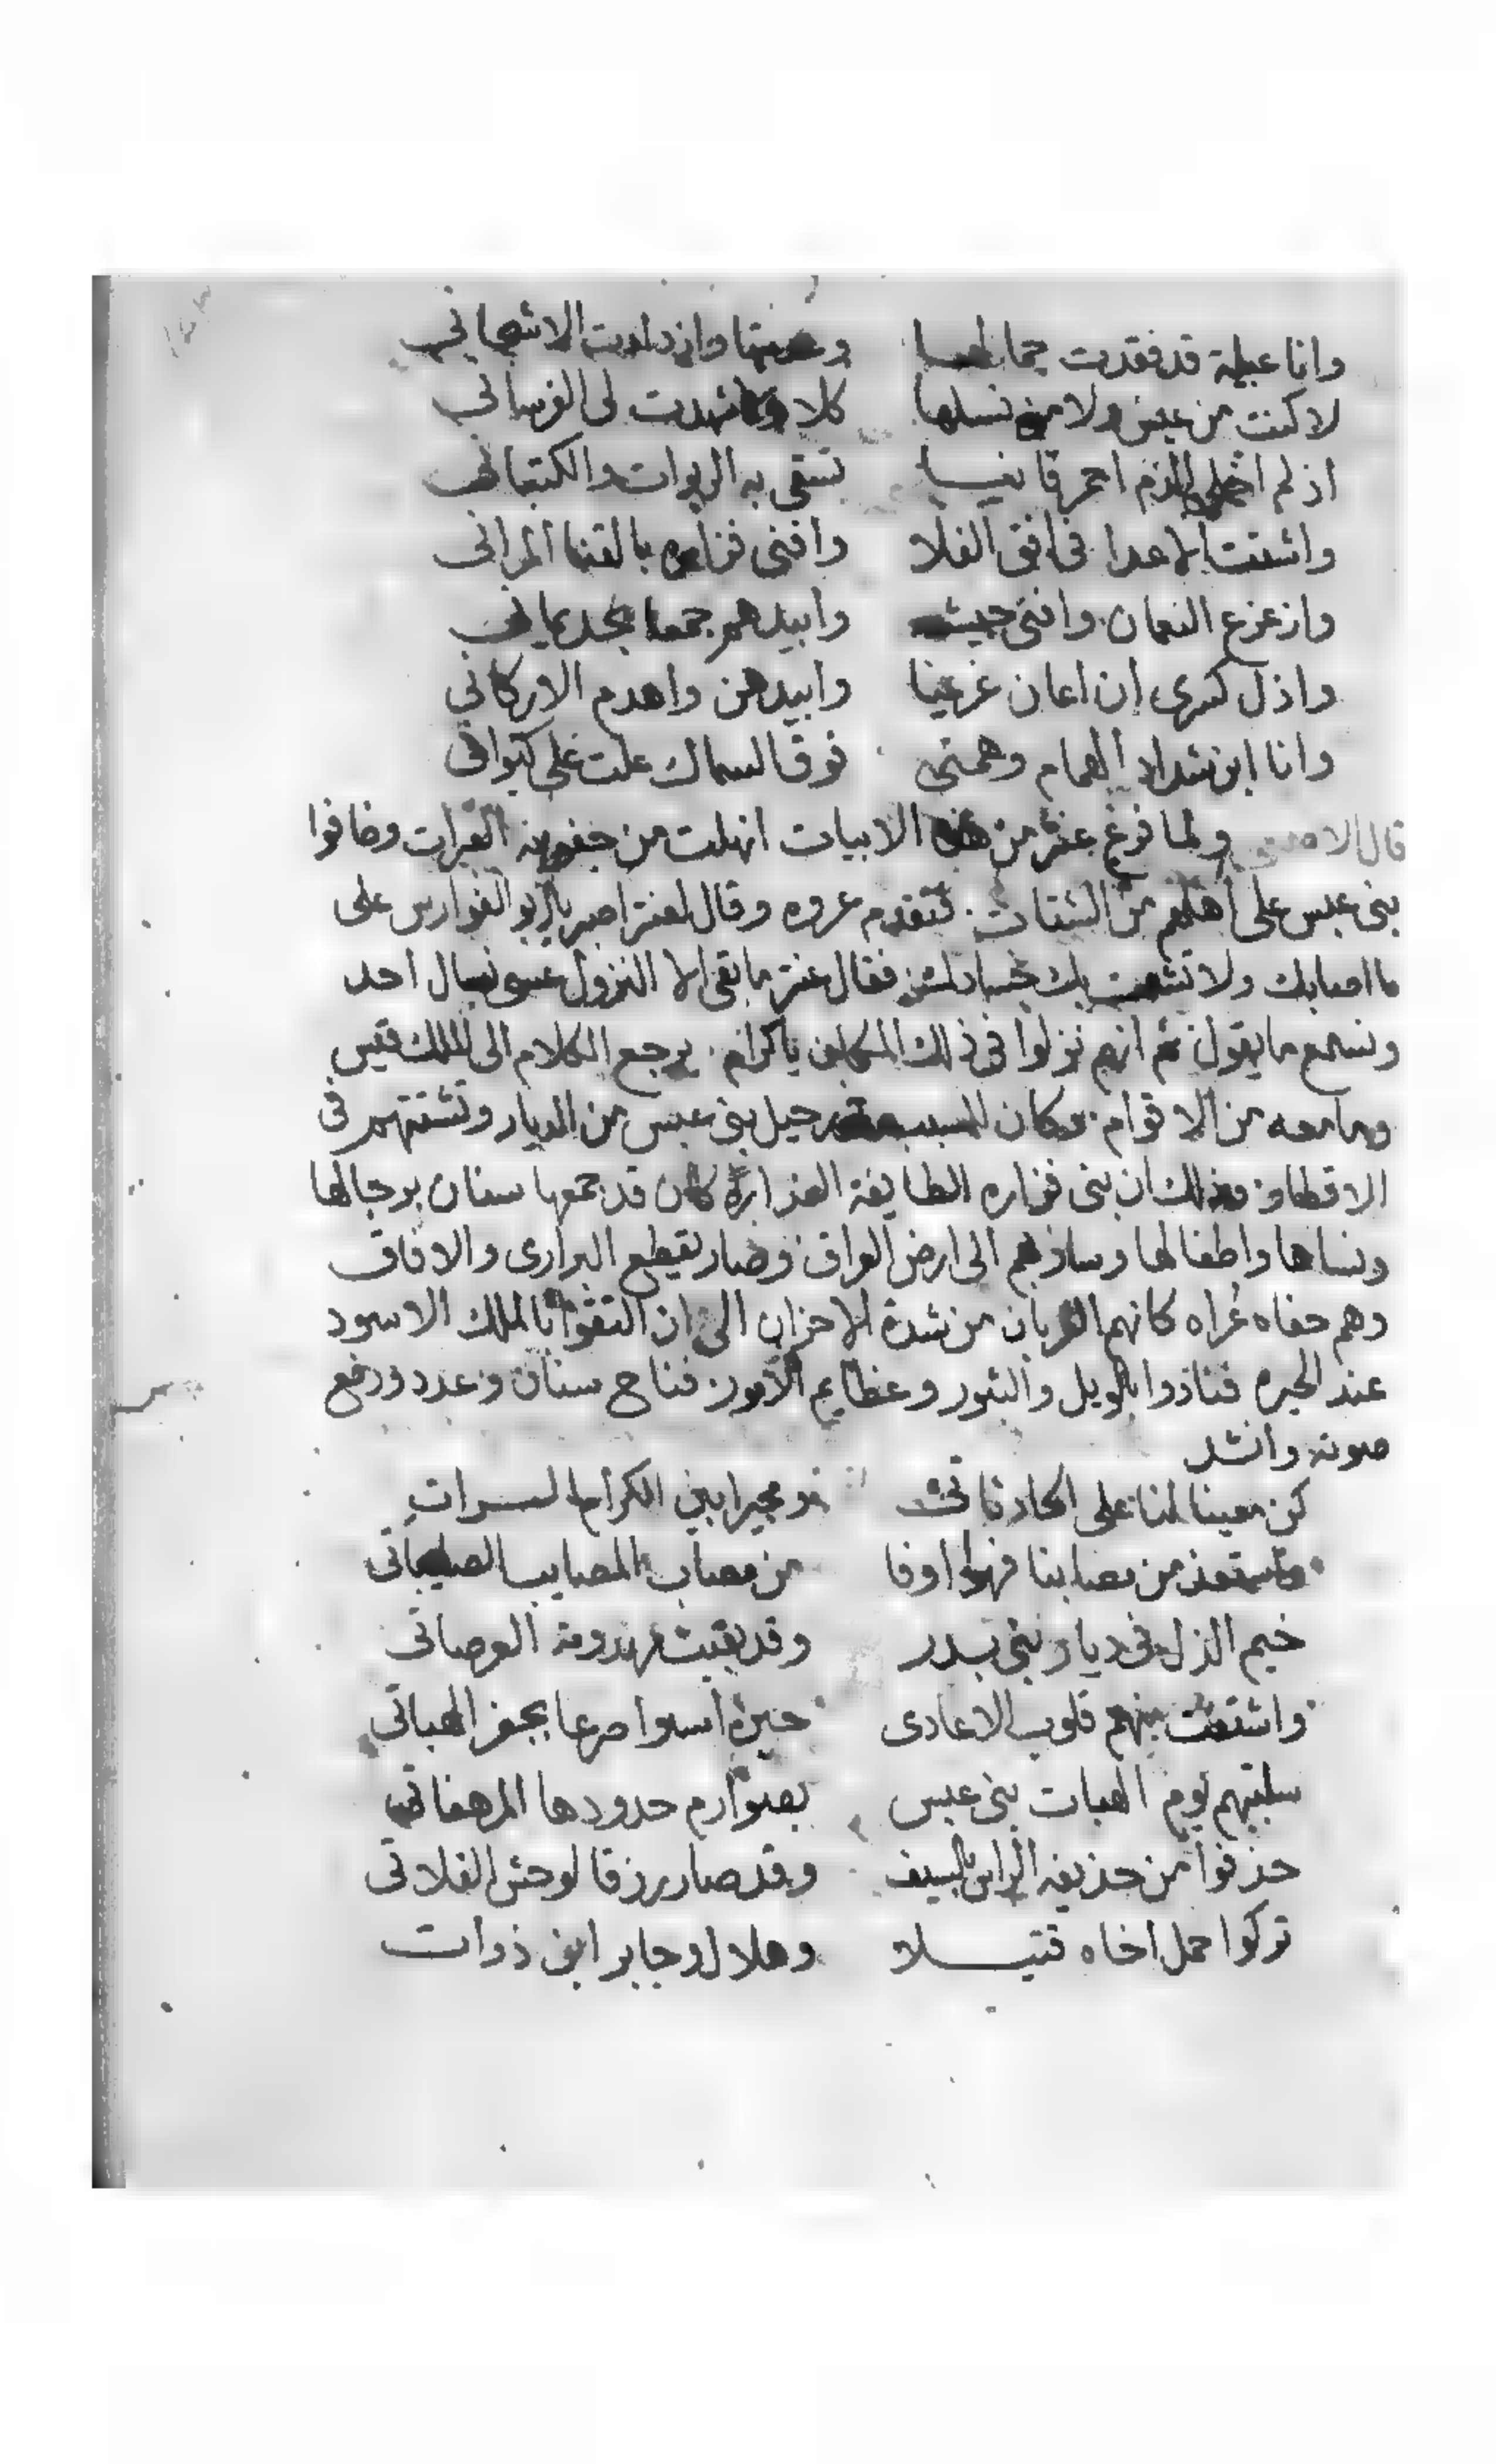 وانا عبلة قد فقدت جمالها وازدادت الاشجاني
لا كنت من عبس ولا من نسلها كلا ولا شهدت لى الفرساني
اذ لم اخلى الدم احمر قانيا تسقى به الربوات والكتباني
واشتت الاعدا فى افق الفلا وافنى فزاره بالقنا المراني
وازعزع النعمان وافنى جيشه وابيدهم جمعا بحد يماني
واذل كسرى ان اعان غريمنا وابيدهن واهدم الاركاني
وانا ابن شداد الهمام وهمتى فوق السماك علت على كيواني
قال الاصمعى ولما فرغ عنتر من هذه الابيات انهلت من جفونه العبرات وخافوا
بنى عبس على اهلهم من الشتات فتقدم عروه وقال لعنتر اصبر يا ابو الفوارس على
ما اصابك ولا تشمت بك حسادك فقال عنتر ما بقى الا النزول عسى نسال احد
ونسمع ما يقول ثم انهم نزلوا فى ذلك المكان يا كرام يرجع الكلام الى الملك قيس
وما معه من الاقوام وكان السبب رحيل بنى عبس من الديار وتشتتهم فى
الاقطار وذلك ان بنى فزاره الطايفة الغداره كان قد جمعها سنان برجالها
ونساها واطفالها وسار بهم الى ارض العراق وصار يقطع البرارى والافاق
وهم حفاه عراه كانهم الغربان من شدة الاحزان الى ان التقوا بالملك الاسود
عند الحيره فنادوا بالويل والثبور وعظايم الامور فناح سنان وعدد ورفع
صوته وانشد
كن معينا لنا على الحادثاتى ومجيرا بين الكرام السرات
واستعذ من مصابنا فهو اوفا من مصاب المصايب
خيم الذل فى ديار بنى بدر وقد بقيت مهدومة العرصاتى
واشتفت منهم قلوب الاعادى حيره اسوا صرعا بجفر الهباتى
سلبتهم يوم الهبات بنى عبس بصوارم حدودها المرهفاتى
حذفوا من حذيفه الراس بالسيف وقد صار رزقا لوحش الفلاتى
تركوا حمل اخاه قتيلا وهلال وجابر ابن ذوات